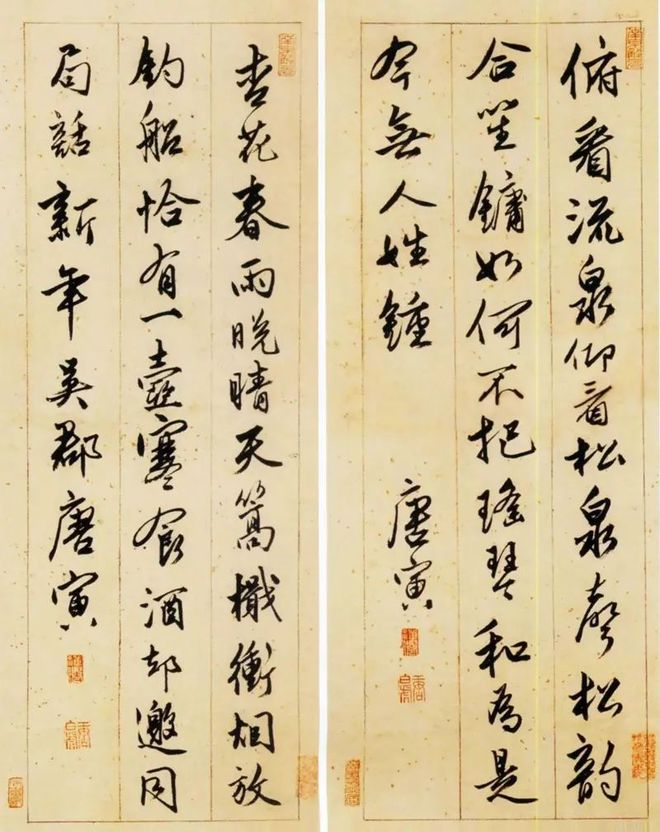 俯看流泉仰看松泉聲松韵
合笙鏞如何不把瑤琴和為是
今無人姓鍾
唐寅
杏花春雨晚晴天篙檝衝烟放
釣船恰有一壺寒食酒却邀同
局話新年吳郡唐寅